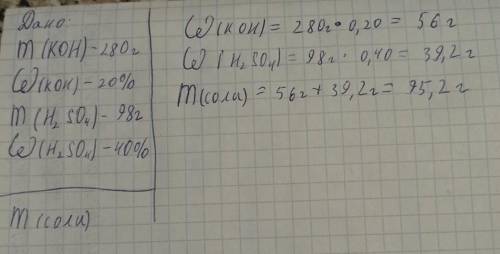 Дано:
m(KOH)-280г
ω(KOH)-20%
m(H₂SO₄)-98г
ω(H₂SO₄)-40%
m(соли)
ω(KOH)=280г·0,20=56г
ω(H₂SO₄)=98г·0,40=39,2г
m(соли)=56г+39,2г=95,2г